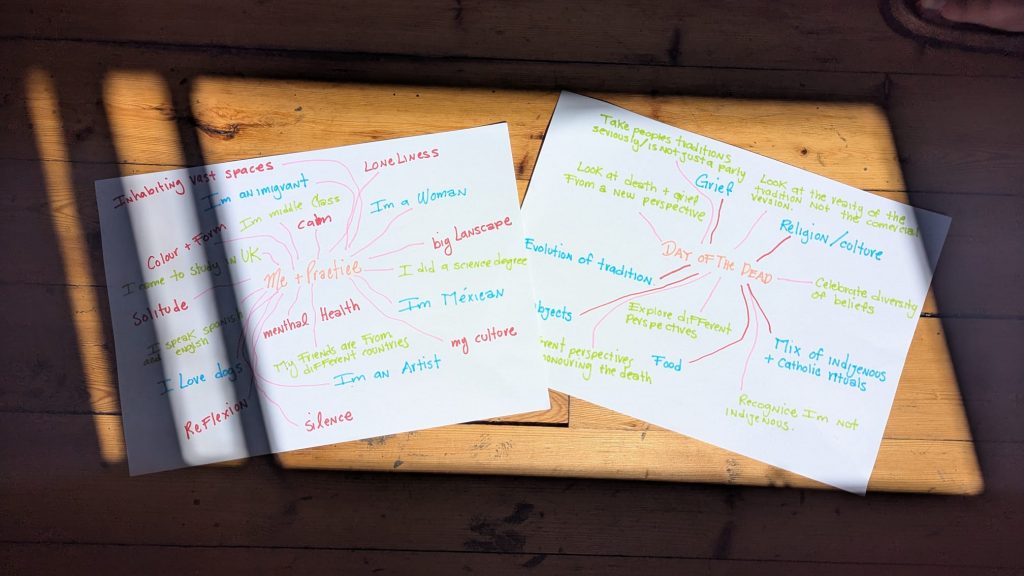 Inhabiting vast spaces
LONELINESS
I'm an imigrant
I'm middle Class
calm
I'm a Woman
Colour + Form
big Lanscape
I come to study in UK
Me + Practice
I did a science degree
Solitude
I'm Méxican
menthal Health
I speak spanish
and english
my culture
My Friends are From
different countries
I Love dogs
I'm an Artist
Reflexion
Silence
Take peoples traditions
seriously/is not just a party
Look at death + grief
From a new perspective
Grief
Look at the reality of the
tradition NOT the comercial
version.
Religion/colture
Evolution of tradition
DAY OF THE DEAD
Celebrate diversity
of beliefs
Explore different
perspectives
perspectives
honouring the death
Food
Mix of indigenous
+ Catholic rituals
Recognise I'm not
indigenous.